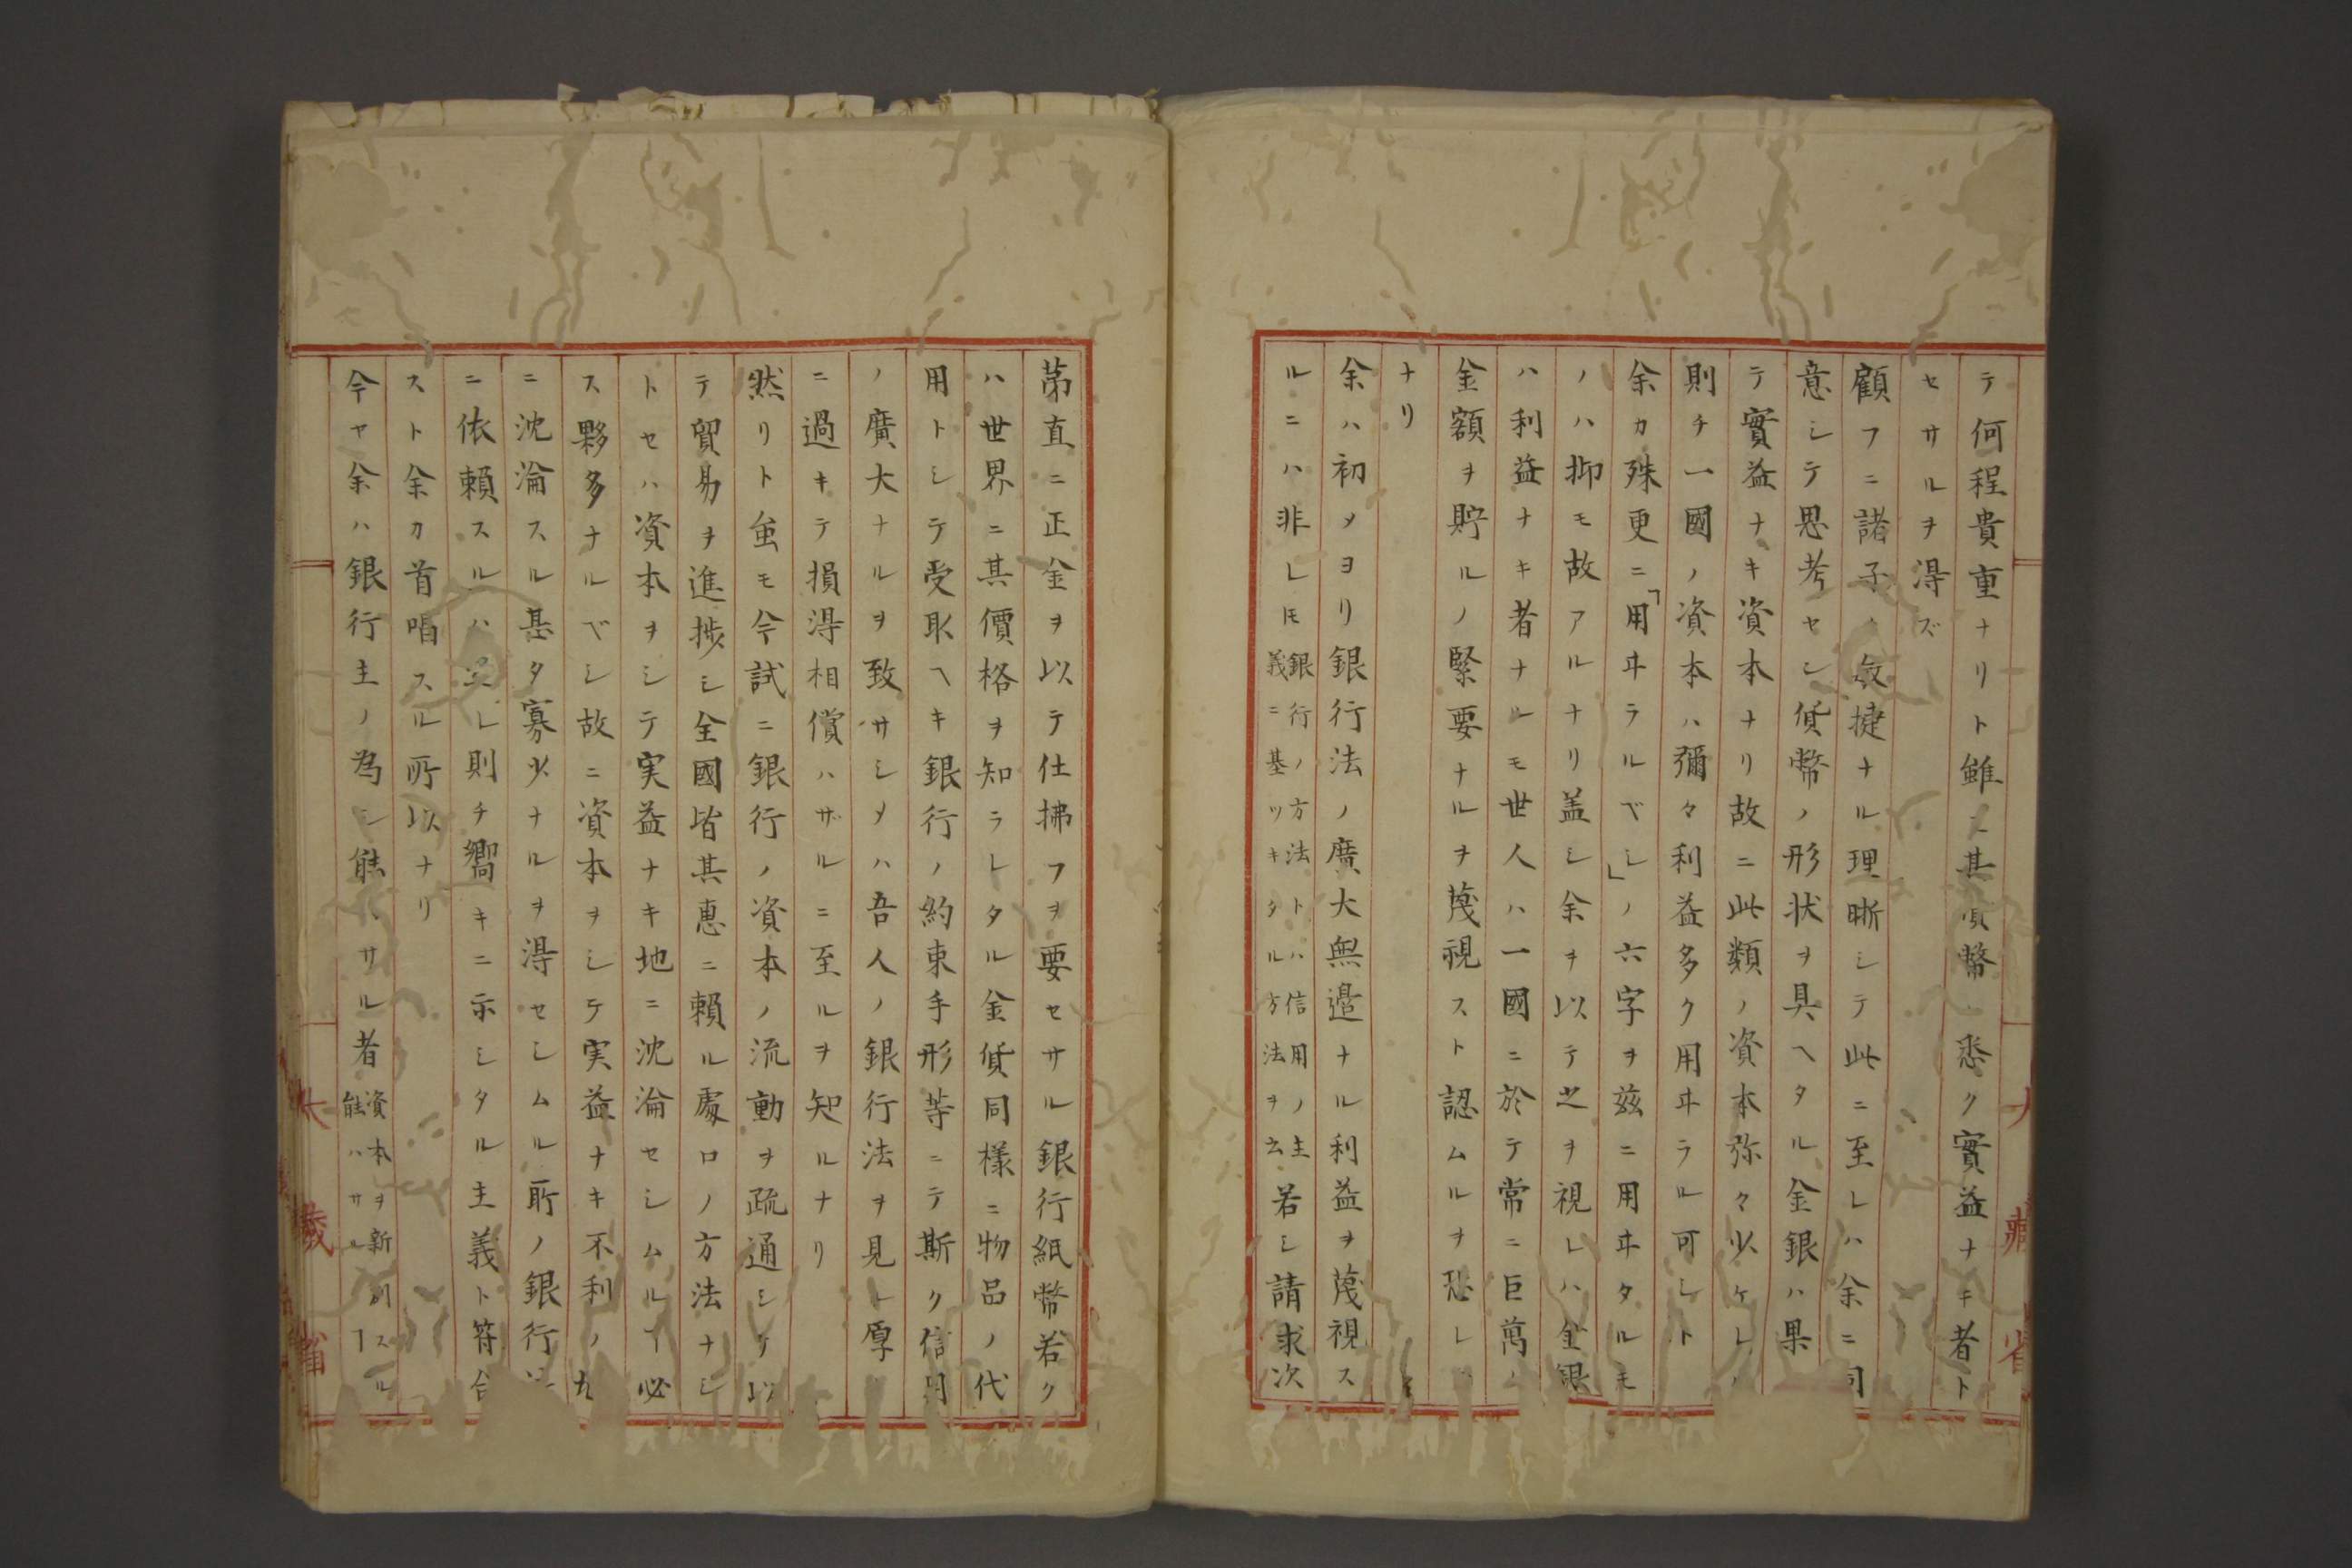 テ何程貴重ナリト雖モ其貨幣悉ク實益ナキ者ト
セサルヲ得ズ
顧フニ諸子ノ敏捷ナル理晰シテ此ニ至レハ余ニ同
意シテ思考セシ貨幣ノ形状ヲ具ヘタル金銀ハ果
テ實益ナキ資本ナリ故ニ此類ノ資本弥々少ケレハ
則チ一國ノ資本ハ彌々利益多ク用ヰラル可シト
余カ殊更ニ「用ヰラルベシ」ノ六字ヲ茲ニ用ヰタルモ
ノハ抑モ故アルナリ盖シ余ヲ以テ之ヲ視レハ金銀
ハ利益ナキ者ナルモ世人ハ一國ニ於テ常ニ巨萬ノ
金額ヲ貯ルノ緊要ナルヲ蔑視スト認ムルヲ恐レ
ナリ
余ハ初メヨリ銀行法ノ廣大無邉ナル利益ヲ蔑視ス
ルニハ非レ𪜈銀行ノ方法トハ信用ノ主義ニ基ツキタル方法ヲ云若シ請求次
苐直ニ正金ヲ以テ仕拂フヲ要セサル銀行紙幣若ク
ハ世界ニ其價格ヲ知ラレタル金貨同様ニ物品ノ代
用トシテ受取ヘキ銀行ノ約束手形等ニテ斯ク信用
ノ廣大ナルヲ致サシメハ吾人ノ銀行法ヲ見ト厚
ニ過キテ損得相償ハザルニ至ルヲ知ルナリ
然リト虽モ今試ニ銀行ノ資本ノ流動ヲ疏通シケ以
テ貿易ヲ進捗シ全國皆其惠ニ賴ル處ロノ方法ナシ
トセハ資本ヲシテ実益ナキ地ニ沈淪セシムルヿ必
ス夥多ナルベシ故ニ資本ヲシテ実益ナキ不利ノ地
ニ沈淪スル甚タ寡少ナルヲ得セシムル所ノ銀行法
ニ依頼スルハ是レ則チ嚮キニ示シタル主義ト符合
スト余カ首唱スル所以ナリ
今ヤ余ハ銀行主ノ為シ能ハサル者資本ヲ新創スルヿ能ハサル
大藏省
大藏省